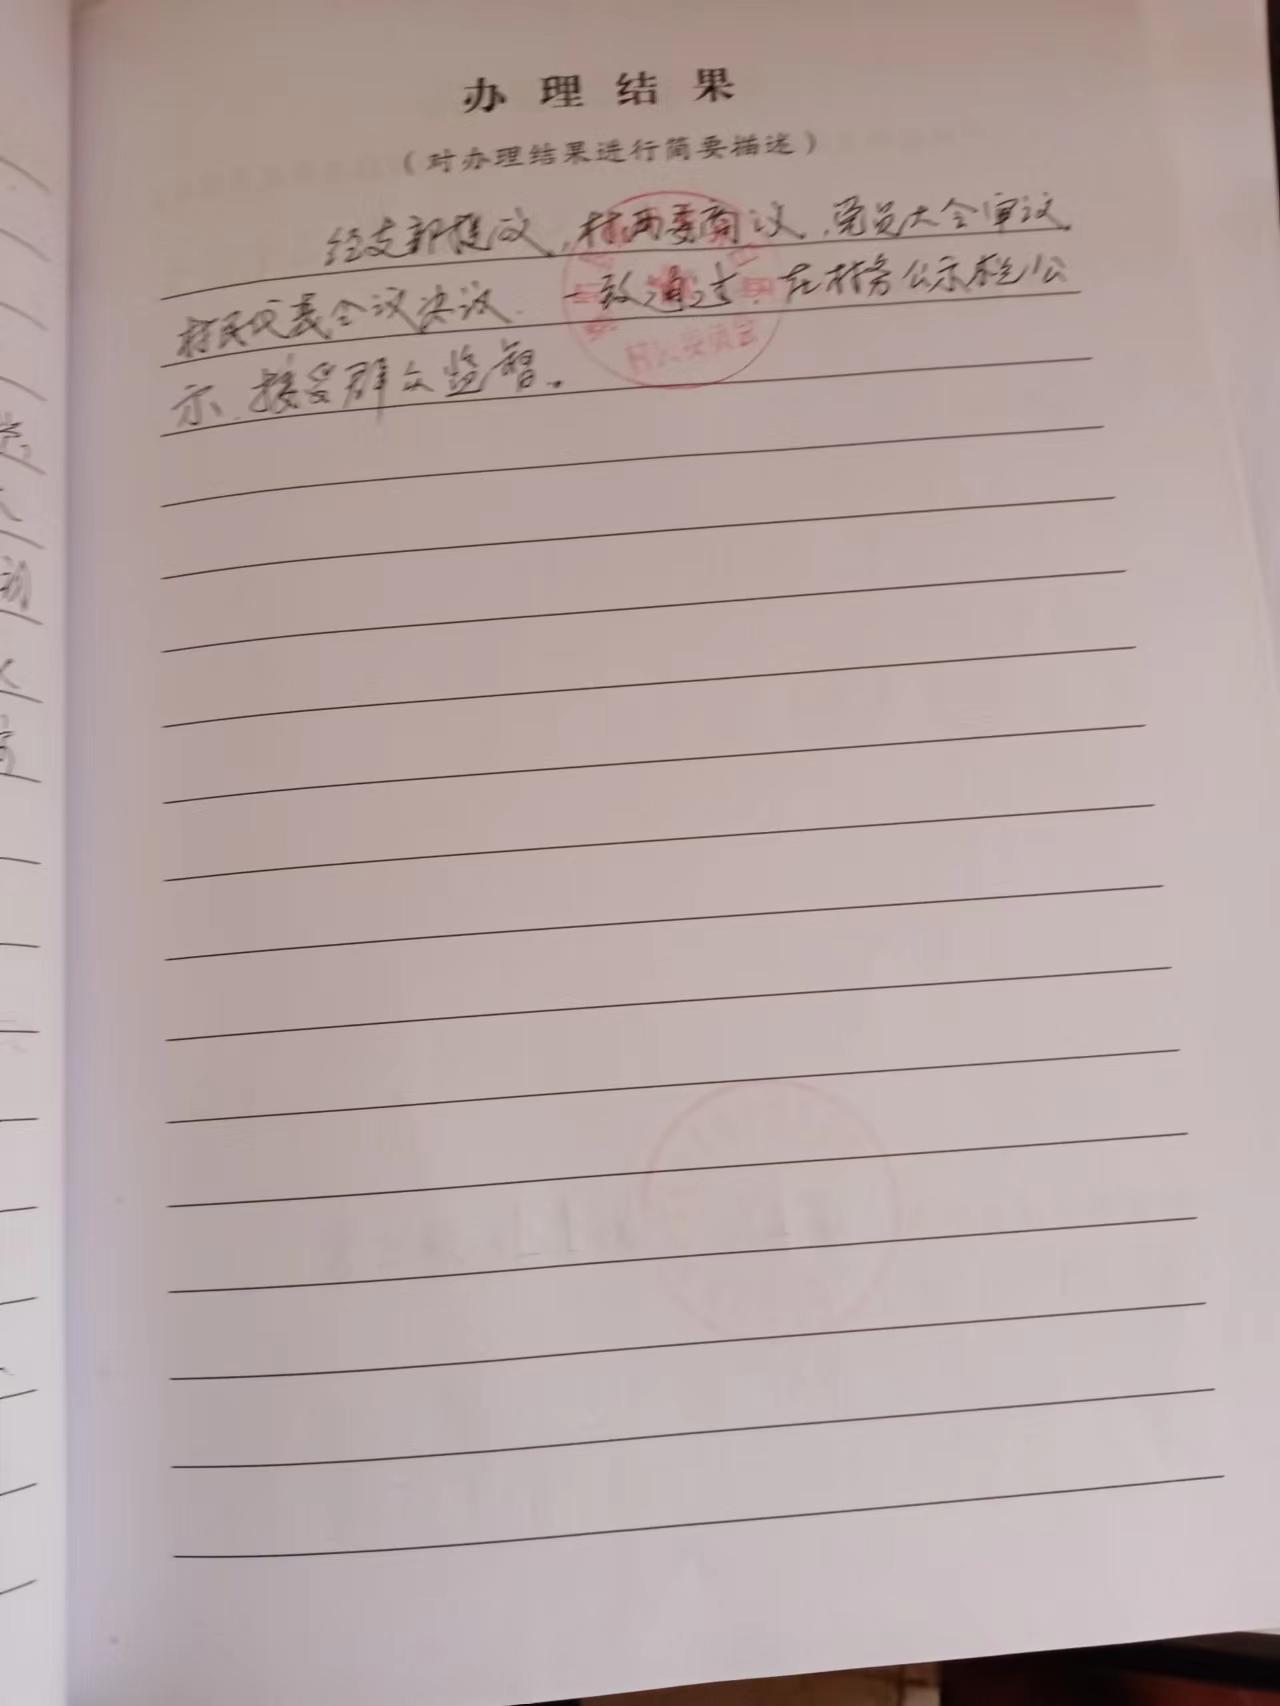 办理结果
（对办理结果进行简要描述）
经支部提议，村两委商议，党员大会审议
村民代表会议决议，一致通过，在村务公示栏公
示，接受群众监督。
村民委员会